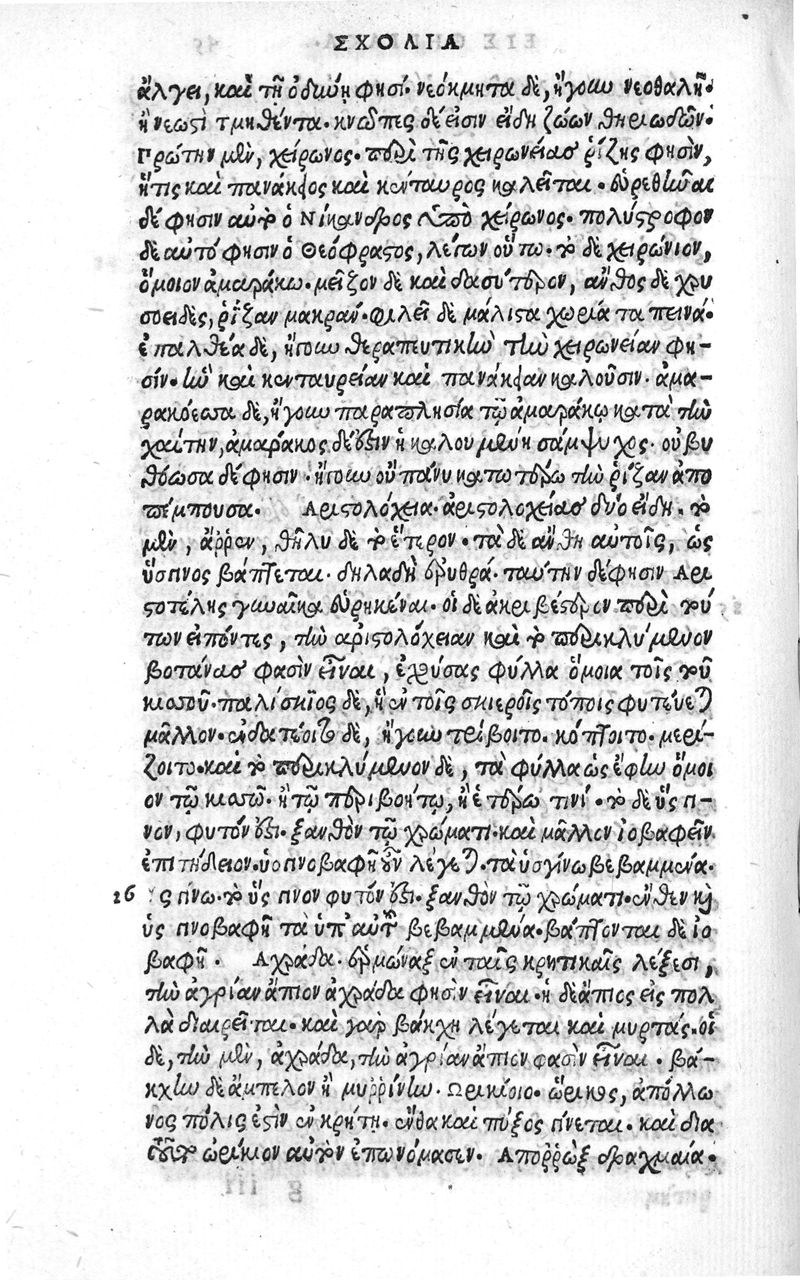 ΣΧΟΛΙΑ
ἄλγει, καὶ τῇ ὀδύνῃ φησί· νεόκμητα δὲ, ἤγουν νεοθαλῆ·
ἢ νεωστὶ τμηθέντα· κνῶπες δέ εἰσιν εἴδη ζώων θηριωδῶν·
Πρώτην μὲν, χείρωνος· περὶ τῆς χειρωνείας ῥίζης φησὶν,
ἥτις καὶ πανάκειος καὶ κένταυρος καλεῖται· εὑρεθῆναι
δέ φησιν αὐτὸ ὁ Νίκανδρος ὑπὸ χείρωνος· πολύστροφον
δὲ αὐτό φησιν ὁ Θεόφραστος, λέγων οὕτω· τὸ δὲ χειρώνιον,
ὅμοιον ἀμαράκω· μεῖζον δὲ καὶ δασύτερον, ἄνθος δὲ χρυ
σοειδὲς, ῥίζαν μακράν· φιλεῖ δὲ μάλιστα χωρία ταπεινά·
ἐπαλθέα δὲ, ἤτοι θεραπευτικὴν τὴν χειρώνειαν φη-
σίν· ἣν καὶ κενταυρείαν καὶ πανάκειαν καλοῦσιν· ἀμα-
ρακόεσσα δὲ, ἤγουν παραπλησία τῷ ἀμαράκῳ κατὰ τὴν
χαίτην, ἀμάρακος δέ ἐστιν ἡ καλουμένη σάμψυχος· οὐ βυ
θόωσα δέ φησιν· ἤτοι οὐ πάνυ κατωτέρω τὴν ῥίζαν ἀπο
πέμπουσα· Αριστολόχεια· ἀριστολοχείας δύο εἴδη· τὸ
μὲν, ἄρρεν, θῆλυ δὲ τὸ ἕτερον· τὰ δὲ ἄνθη αὐτοῖς, ὡς
ὕσγινος βάπτεται· δηλαδὴ ἐρυθρά· ταύτην δέ φησιν Αρι
στοτέλης γυναῖκα εὑρηκέναι· οἱ δὲ ἀκριβέστερον περὶ τού
των εἰπόντες, τὴν ἀριστολόχειαν καὶ τὸ περικλύμενον
βοτάνας φασὶν εἶναι, ἐχούσας φύλλα ὅμοια τοῖς τοῦ
κισσοῦ· παλίσκιος δὲ, ἢ ἐν τοῖς σκιεροῖς τόποις φυτεύεται
μᾶλλον· ἐνδατέοιτο δὲ, ἤγουν τρίβοιτο· κόπτοιτο· μερί-
ζοιτο· καὶ τὸ περικλύμενον δὲ, τὰ φύλλα ὡς ἔφην ὅμοι
ον τῷ κισσῷ· ἢ τῷ περιβοήτῳ, ἢ ἑτέρω τινί· τὸ δὲ ὕσγι-
νον, φυτόν ἐστι· ξανθὸν τῷ χρώματι· καὶ μᾶλλον ἰοβαφεῖν
ἐπιτήδειον· ὑσγινοβαφῆ οὖν λέγεται· τὰ ὑσγίνω βεβαμμένα·
26 ὑσγίνω· τὸ ὕσγινον φυτόν ἐστι· ξανθὸν τῷ χρώματι· ἔνθεν καὶ
ὑσγινοβαφῆ τὰ ὑπ' αὐτοῦ βεβαμμένα· βάπτονται δὲ ἰο
βαφῆ· Αχράδα· ἑρμώναξ ἐν ταῖς κρητικαῖς λέξεσι,
τὴν ἀγρίαν ἄπιον ἀχράδα φησὶν εἶναι· ἡ δὲ ἄπιος εἰς πολ
λὰ διαιρεῖται· καὶ γὰρ βάκχη λέγεται καὶ μυρτάς· οἱ
δὲ, τὴν μὲν, ἀχράδα, τὴν ἀγρίαν ἄπιον φασὶν εἶναι· βά-
κχην δὲ ἄμπελον ἢ μυρρίνην· Ωρικίοιο· ὤρικος, ἀπόλλω
νος πόλις ἐστὶν ἐν κρήτῃ· ἔνθα καὶ πύξος γίνεται· καὶ διὰ
τοῦτο ὠρίκιον αὐτὸν ἐπωνόμασεν· Απορρὼξ δραχμαία·